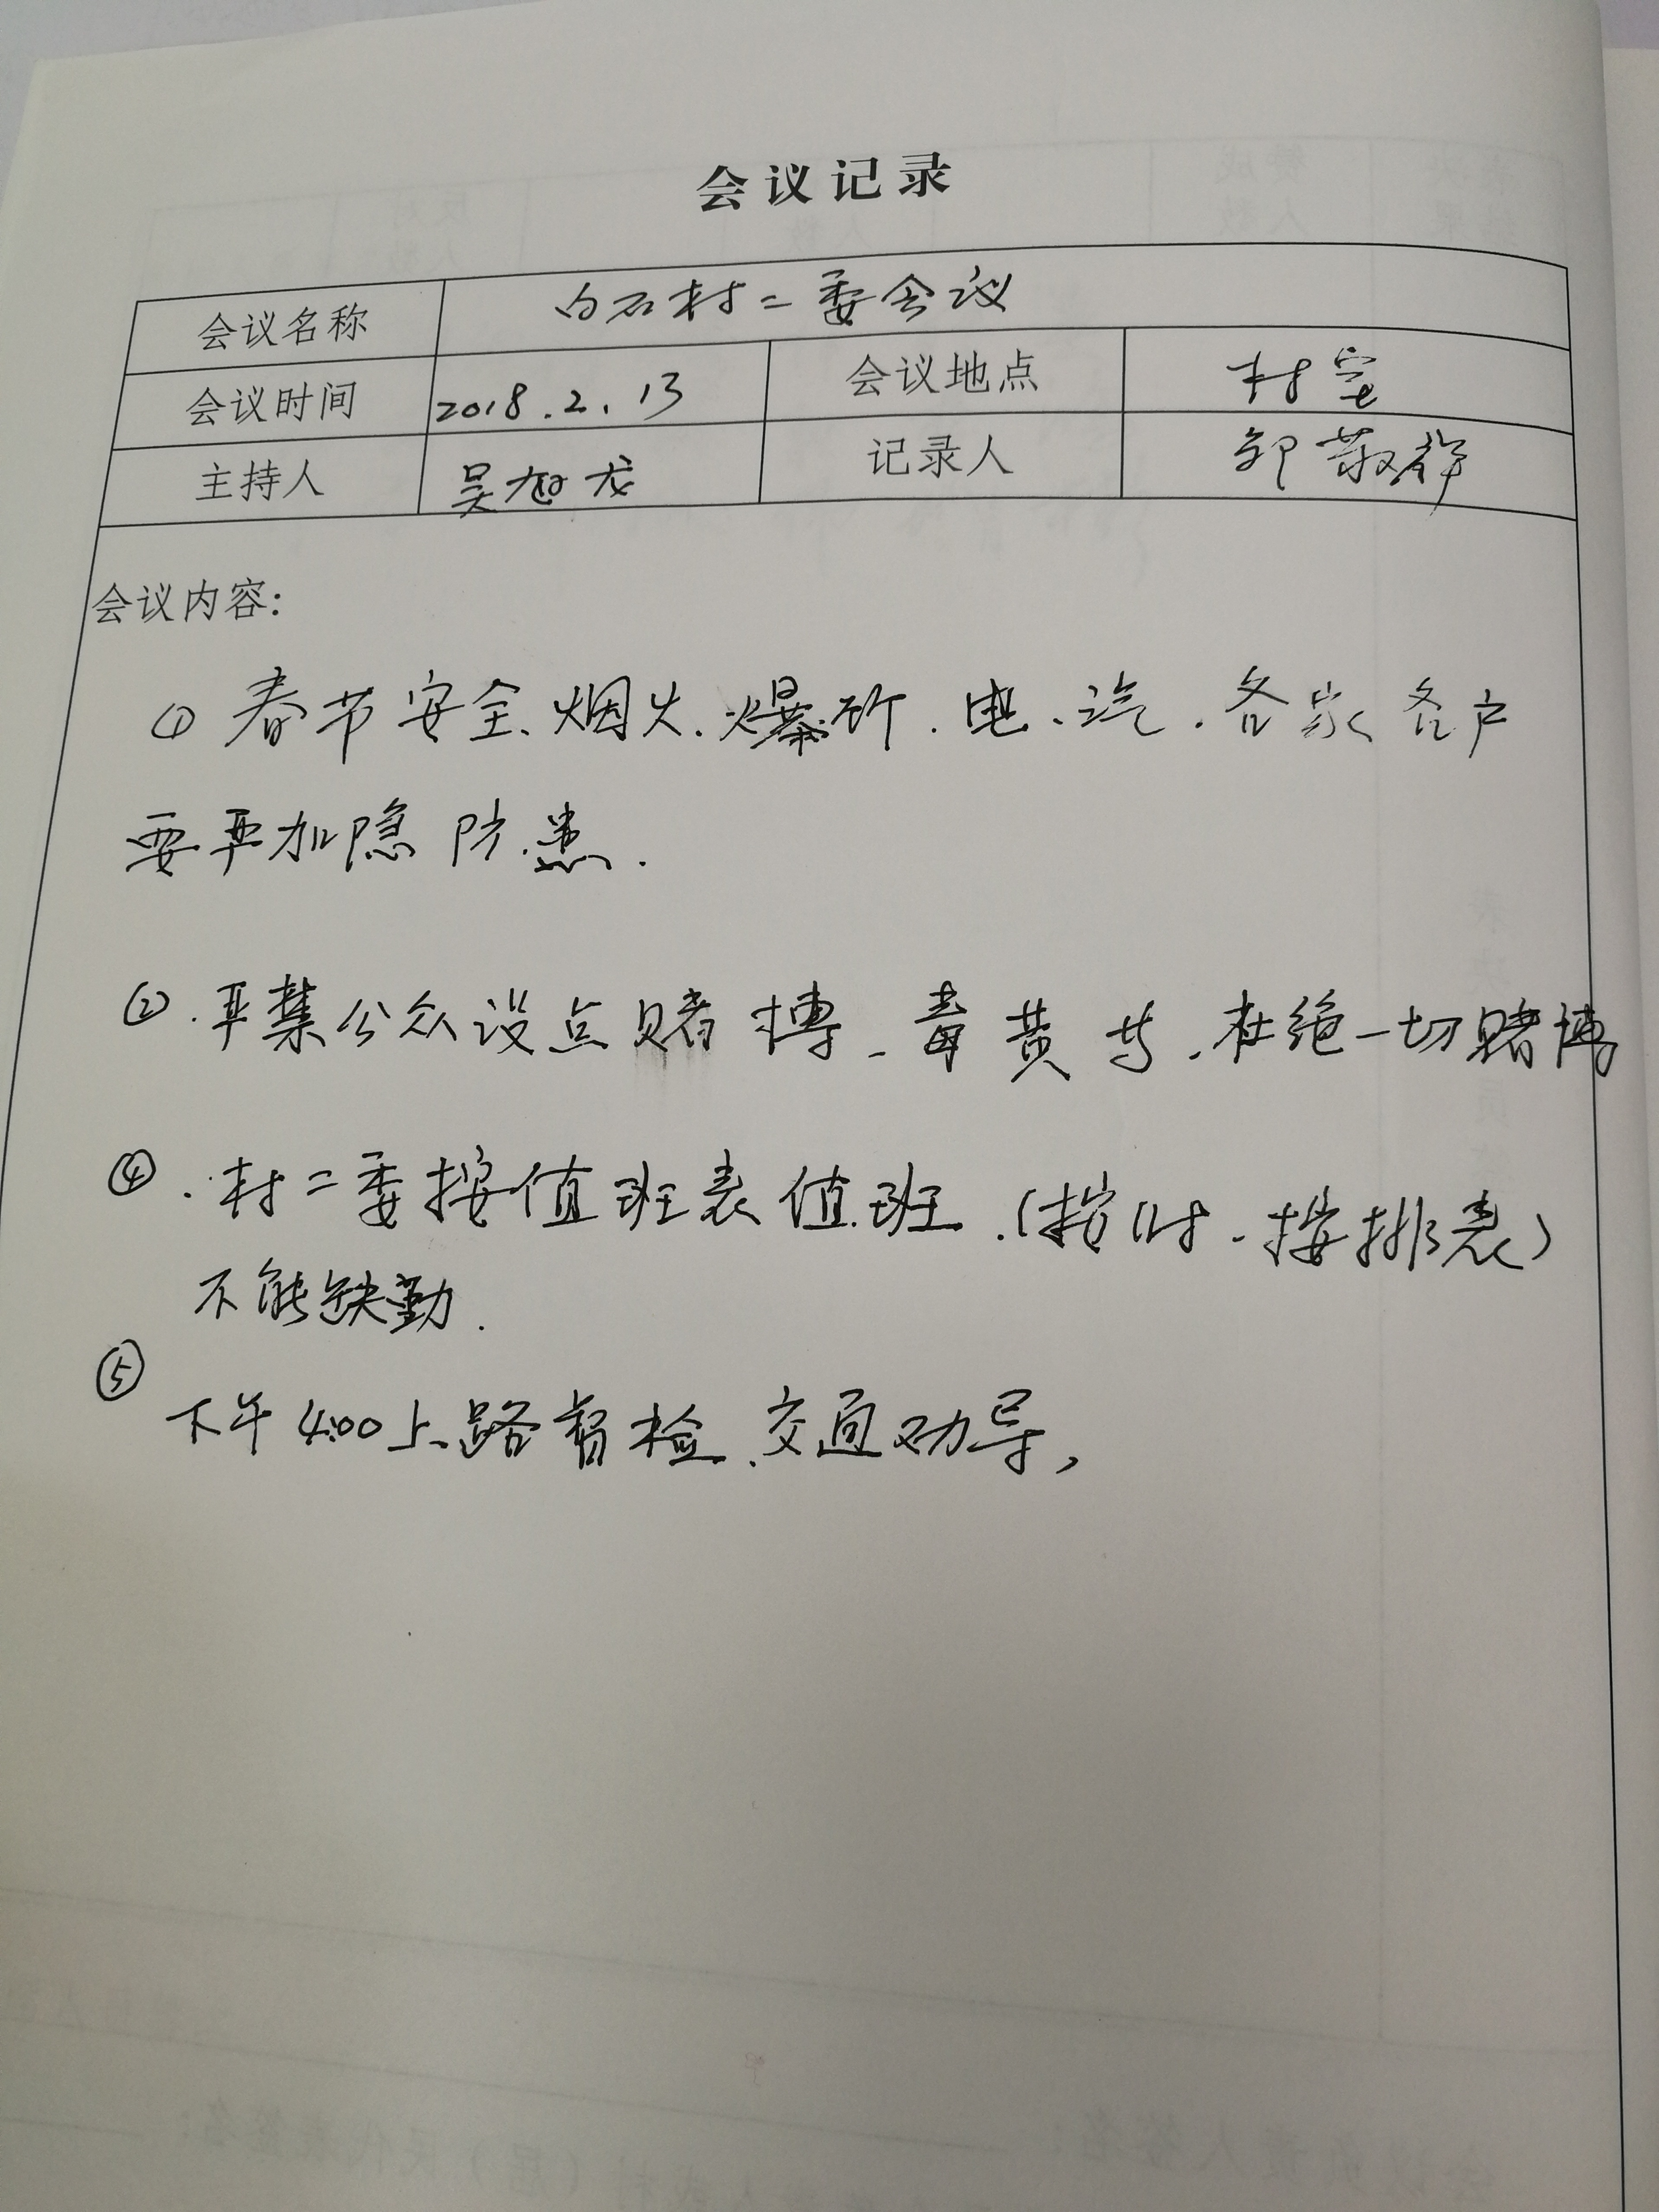 会议记录
会议名称 白石村二委会议
会议时间 2018.2.13 会议地点 村室
主持人 吴旭龙 记录人 邹敬祥
会议内容:
① 春节安全、烟火、爆炸、电、汽、各家各户
要严加隐防患.
②.严禁公众设点赌博、毒黄等、杜绝一切赌博
④.村二委按值班表值班.(按时、按排表)
不能缺勤.
⑤
下午4:00上路督检、交通劝导,